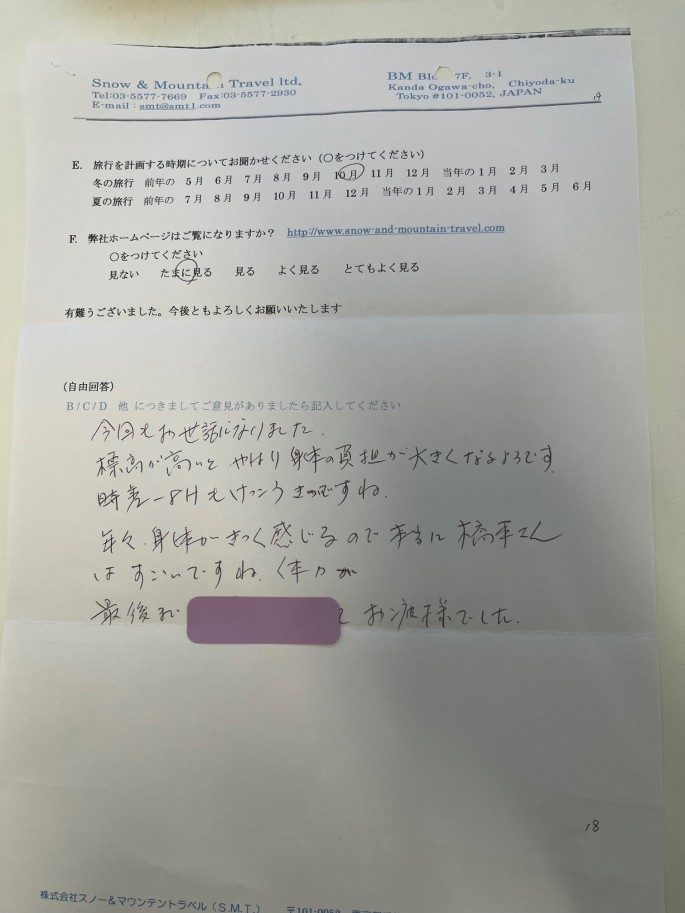 Snow & Mountain Travel ltd.
Tel:03-5577-7669 Fax:03-5577-2930
E-mail : smt@smt1.com
BM 7F, 3-1
Kanda Ogawa-cho, Chiyoda-ku
Tokyo #101-0052, JAPAN
E. 旅行を計画する時期についてお聞かせください（○をつけてください）
冬の旅行 前年の 5月 6月 7月 8月 9月 10月 11月 12月 当年の1月 2月 3月
夏の旅行 前年の 7月 8月 9月 10月 11月 12月 当年の1月 2月 3月 4月 5月 6月
F. 弊社ホームページはご覧になりますか？ http://www.snow-and-mountain-travel.com
○をつけてください
見ない たまに見る 見る よく見る とてもよく見る
有難うございました。今後ともよろしくお願いいたします
（自由回答）
B/C/D 他 につきましてご意見がありましたら記入してください
今回もお世話になりました.
標高が高いと やはり 身体の負担が 大きくなるようです.
時差-8Hもけっこうきついですね.
年々、身体がきつく感じるので 本当に 橋本さん
は すごいですね. 体力が
最後まで お疲様でした.
18
株式会社スノー&マウンテントラベル（S.M.T.） 〒101-0052